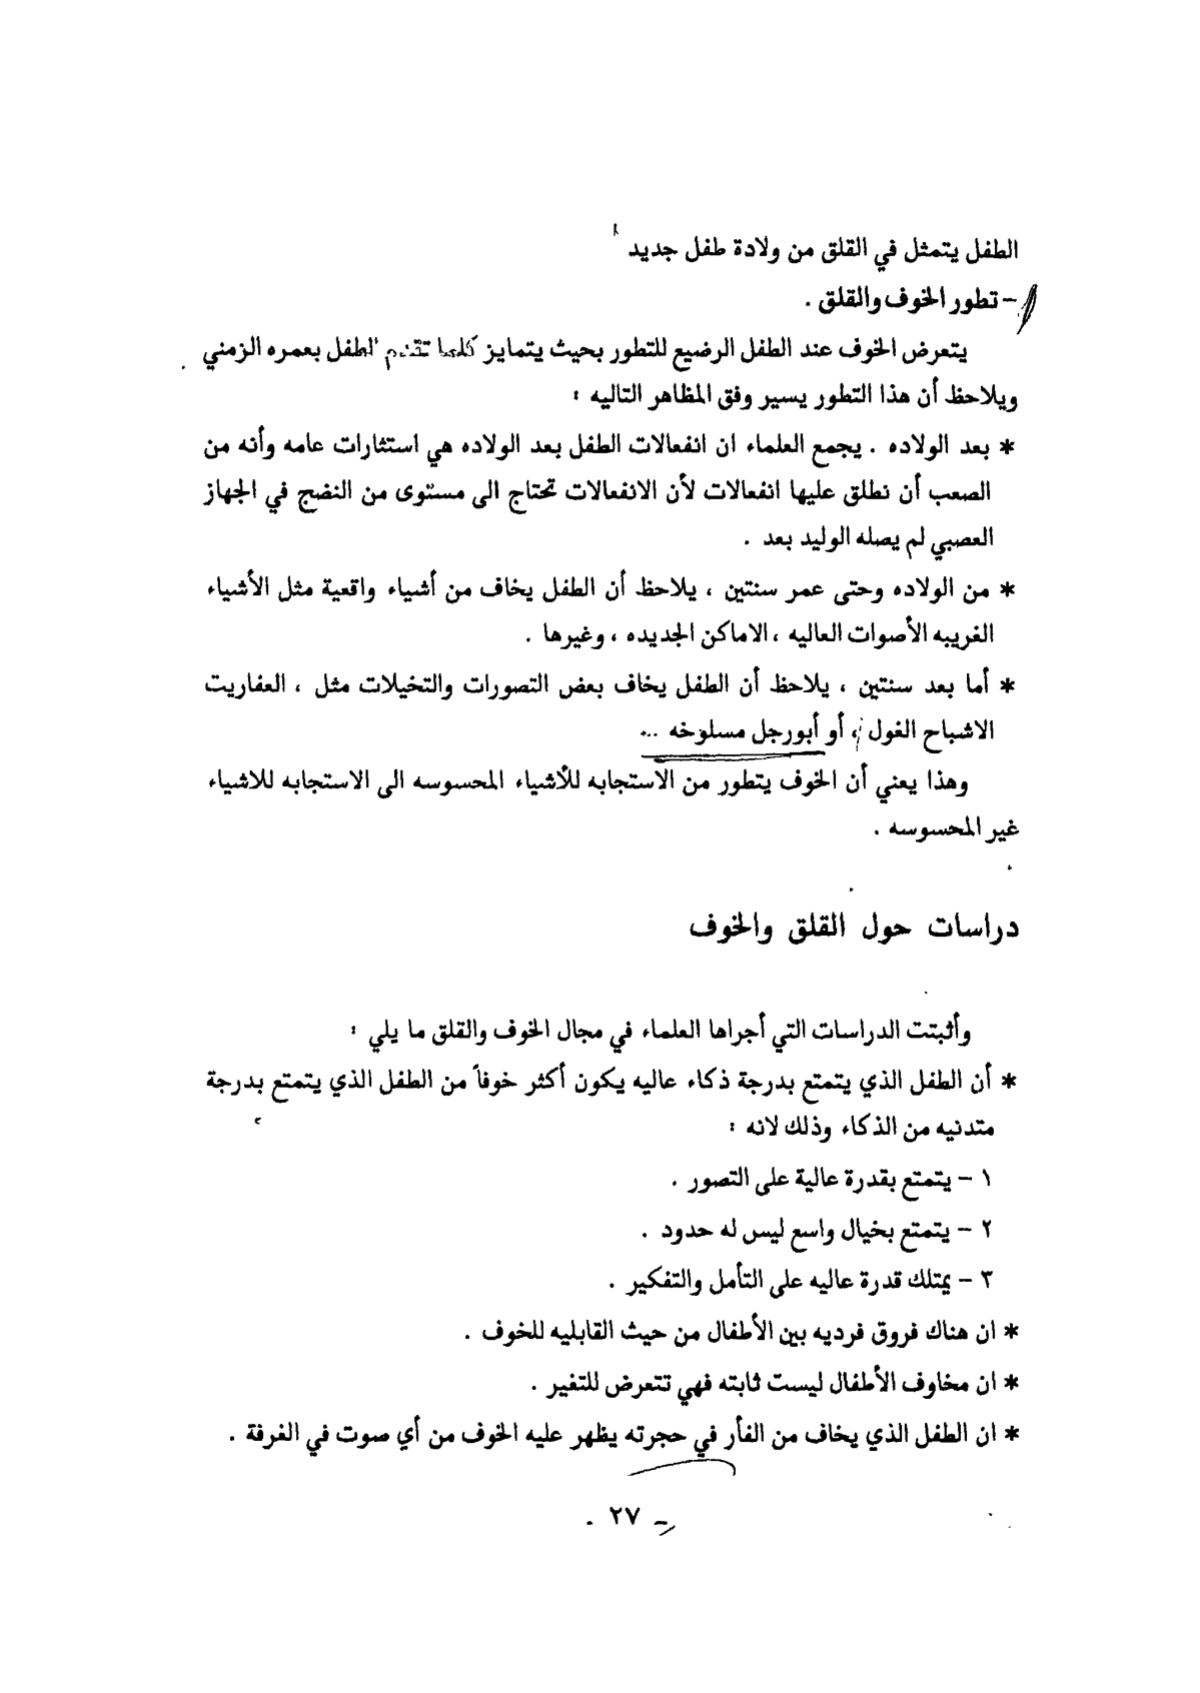 الطفل يتمثل في القلق من ولادة طفل جديد
- تطور الخوف والقلق .
يتعرض الخوف عند الطفل الرضيع للتطور بحيث يتمايز كلما تقدم الطفل بعمره الزمني
ويلاحظ أن هذا التطور يسير وفق المظاهر التاليه :
* بعد الولاده . يجمع العلماء ان انفعالات الطفل بعد الولاده هي استثارات عامه وأنه من
الصعب أن نطلق عليها انفعالات لأن الانفعالات تحتاج الى مستوى من النضج في الجهاز
العصبي لم يصله الوليد بعد .
* من الولاده وحتى عمر سنتين ، يلاحظ أن الطفل يخاف من أشياء واقعية مثل الأشياء
الغريبه الأصوات العاليه ، الاماكن الجديده ، وغيرها .
* أما بعد سنتين ، يلاحظ أن الطفل يخاف بعض التصورات والتخيلات مثل ، العفاريت
الاشباح الغول ، أو أبورجل مسلوخه ...
وهذا يعني أن الخوف يتطور من الاستجابه للأشياء المحسوسه الى الاستجابه للاشياء
غير المحسوسه .
دراسات حول القلق والخوف
وأثبتت الدراسات التي أجراها العلماء في مجال الخوف والقلق ما يلي :
* أن الطفل الذي يتمتع بدرجة ذكاء عاليه يكون أكثر خوفاً من الطفل الذي يتمتع بدرجة
متدنيه من الذكاء وذلك لانه :
١ - يتمتع بقدرة عالية على التصور .
٢ - يتمتع بخيال واسع ليس له حدود .
٣ - يمتلك قدرة عاليه على التأمل والتفكير .
* ان هناك فروق فرديه بين الأطفال من حيث القابليه للخوف .
* ان مخاوف الأطفال ليست ثابته فهي تتعرض للتغير .
* ان الطفل الذي يخاف من الفأر في حجرته يظهر عليه الخوف من أي صوت في الغرفة .
- ٢٧ -